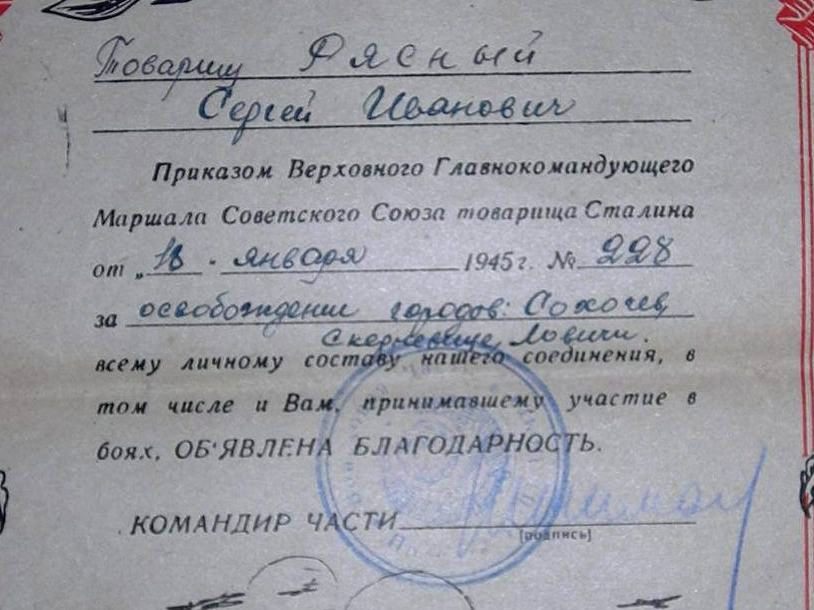 Товарищ Рясный
Сергей Иванович
Приказом Верховного Главнокомандующего
Маршала Советского Союза товарища Сталина
от „18 " января 1945 г. № 228
за освобождении городов: Сохочев,
Скерневице, Ловичи.
всему личному составу нашего соединения, в
том числе и Вам, принимавшему участие в
боях, ОБ'ЯВЛЕНА БЛАГОДАРНОСТЬ.
КОМАНДИР ЧАСТИ
[подпись]